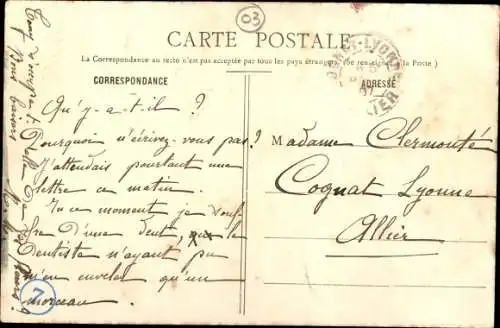 03
CARTE POSTALE
La Correspondance au recto n'est pas acceptée par tous les pays étrangers. (Se renseigner à la Poste)
CORRESPONDANCE
ADRESSE
Qu'y-a-t-il ?
Pourquoi n'écrivez-vous pas ?
J'attendais pourtant une
lettre ce matin.
En ce moment je souf-
fre d'une dent, le
Dentiste n'ayant pu
m'en enlever qu'un
morceau
7
Madame Clermonté
Cognat Lyonne
Allier